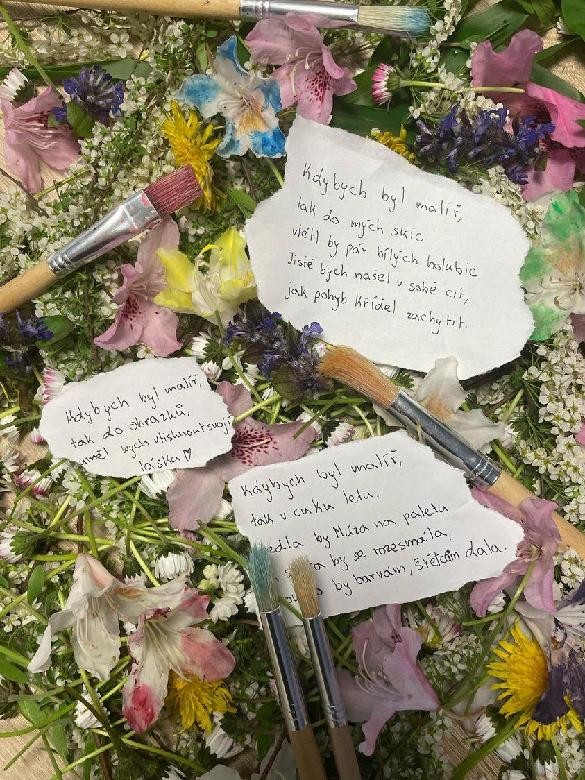 Kdybych byl malíř,
tak do mých skic
vlétl by pár bílých holubic
Jistě bych našel v sobě cit,
jak pohyb křídel zachytit.
Kdybych byl malíř,
tak do obrázků,
uměl bych vtisknout svoji
lásku ♡
Kdybych byl malíř,
tak v cuku letu,
sedla by Múza na paletu
by se rozesmála,
by barvám, štětcům dala.